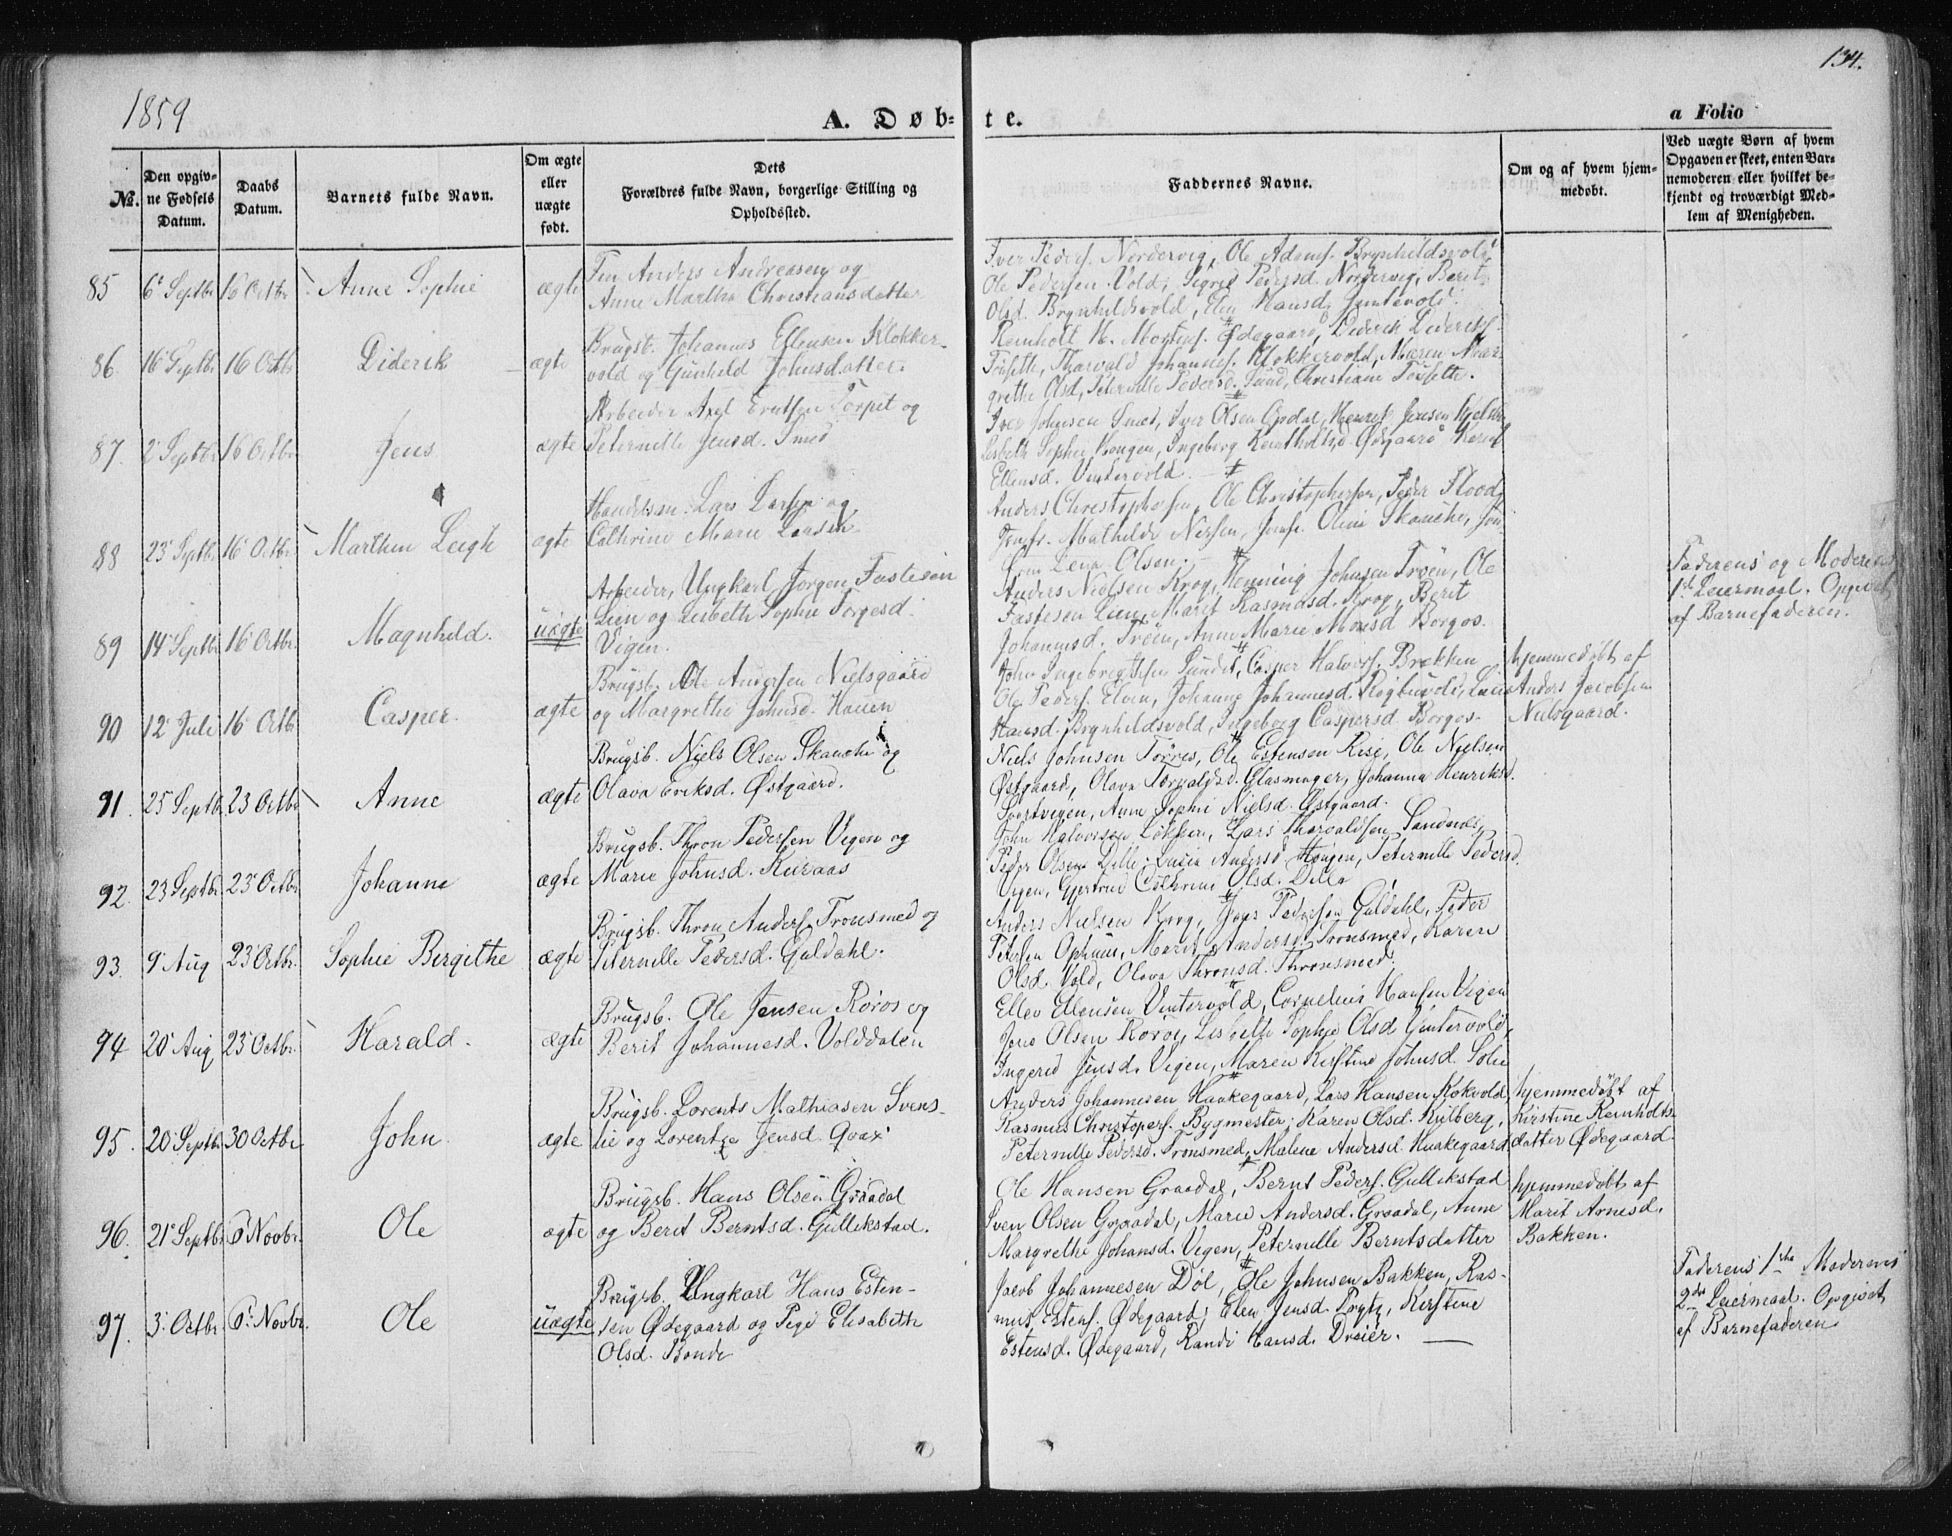 134.
1859
A. Døb-te.
a Folio
№.
Den opgiv-
ne Fødsels
Datum.
Daabs
Datum.
Barnets fulde Navn.
Om ægte
eller
uægte
født.
Dets
Forældres fulde Navn, borgerlige Stilling og
Opholdssted.
Faddernes Navne.
Om og af hvem hjem-
medøbt.
Ved uægte Børn af hvem
Opgaven er skeet, enten Bar-
nemoderen eller hvilket be-
kjendt og troværdigt Med-
lem af Menigheden.
85 6 Septbr 16 Octbr Anne Sophie ægte
Anders Andreasen og
Anne Martha Christiansdatter
Iver Peders. Nordervig, Ole Adams. Brynhildsvold
Ole Pedersen Vold, Sigrid Pedersd. Nordervig, Berit
Olsd. Brynhildsvold, Elen Hansd.
86 16 Septbr 16 Octbr Diderik ægte
Brugsb. Johannes Ellensen Klokker-
vold og Gunhild Johnsdatter.
Reinholt M. Mortens. Ødegaard, Diderik Dideriks.
Tofsette, Tharvald Johannes. Klokkervold, Maren Mar-
grethe Olsd, Peternille Pedersd. Sund, Christiane Tofsette.
87. 2 Septbr 16 Octbr Jens ægte
Arbeider Axel Torpet og
Peternille Jensd. Smed
Iver Johnsen Smed, Iver Olsen Opdal, Henrik Jensen
Lisbeth Sophie Haugen, Ingeborg Reinholtsd. Ødegaard
Ellensd. Vintervold
88 23 Septbr 16 Octbr Marthin Leigh ægte
Handelsm. Lars Larsen og
Cathrine Marie
Anders Christophersen, Ole Christophersen, Peder Flood,
Jomfr. Mathilde Nissen, Jomfr. Oline Skanche, Jom-
fru Lena Olsen.
89 14 Septbr 16 Octbr. Magnhild. uægte
Arbeider, Ungkarl Jørgen Fastesen
Lien og Lisbeth Sophie Torgesd.
Vigen.
Anders Nielsen Krog, Henning Johnsen Trøen, Ole
Fastesen Lien, Marit Rasmusd. Krog, Berit
Johannesd. Trøen, Anne Marie Monsd Borgos.
Faderens og Moderens
1ste Leiermaal. Opgivet
af Barnefaderen.
90 12 Juli 16 Octbr Casper. ægte
Brugsb. Ole Andersen Nielsgaard
og Margrethe Johnsd. Hauen
John Ingebregtsen Sundet, Casper Halvors. Brekken
Ole Peders. Elven, Johanna Johannesd.
Hansd. Brynhildsvold, Ingeborg Caspersd. Borgos.
hjemmedøbt af
Anders Jacobsen
Nielsgaard.
91. 25 Septbr 23 Octbr Anne ægte
Brugsb. Niels Olsen Skanche og
Olava Eriksd. Østgaard.
Niels Johnsen Torres, Ole Estensen Rise, Ole Nielsen
Østgaard, Olava Torvaldsd. Glasmager, Johanna Henriksd.
Svartvigen, Anne Sophie Nielsd. Østgaard.
92. 23 Septbr 23 Octbr Johanne ægte
Brugsb. Thron Pedersen Vigen og
Marie Johnsd. Kuraas
John Halvorsen Løkken, Lars Tharvaldsen Sandnæs,
Peder Olsen Dille, Lucia Andersd Haugen, Peternille Pedersd.
Vigen, Gjertrud Cathrine Olsd. Dille
93. 9 Aug 23 Octbr. Sophie Birgithe ægte
Brugsb. Thron Anders. Tronsmed og
Peternille Pedersd. Guldahl.
Anders Nielsen Krog, Jens Pedersen Guldahl, Peder
Petersen Ophuus, Marit Andersd. Tronsmed, Karen
Olsd. Vold, Olava Thronsd. Thronsmed.
94 20 Aug 23 Octbr. Harald. ægte
Brugsb. Ole Jensen Røros og
Berit Johannesd. Volddalen
Ellev Ellensen Vintervold, Cornelius Hansen Vigen
Jens Olsen Røros, Lisbeth Sophie Olsd Vintervold,
Ingerid Jensd. Vigen, Maren Kirstine Johnsd. Solie
95. 20 Septbr 30 Octbr John. ægte
Brugsb. Lorents Mathiasen Svens-
lie og Lorentze Jensd. Qvax
Anders Johannesen Haakegaard, Lars Hansen Kokvold,
Rasmus Christopers. Bygmester, Karen Olsd. Kulberg,
Peternille Pedersd. Tronsmed, Malene Andersd. Haakegaard.
hjemmedøbt af
Kirstine Reinholts-
datter Ødegaard.
96. 21 Septbr. 6 Novbr. Ole ægte
Brugsb. Hans Olsen Graadal
og Berit Berntsd. Gullikstad.
Ole Hansen Graadal, Bernt Peders. Gullikstad
Sven Olsen Graadal, Marie Andersd. Graadal, Anne
Margrethe Johansd. Vigen, Peternille Berntsdatter
hjemmedøbt af
Marit Arnesd.
Bakken.
97. 3 Octbr. 6 Novbr. Ole uægte
Brugsb. Ungkarl Hans Esten-
sen Ødegaard og Pige Elisabeth
Olsd. Bonde
Jacob Johannesen Døl, Ole Johnsen Bakken, Ras-
mus Estens. Ødegaard, Elen Jensd. Prytz, Kirstine
Estensd. Ødegaard, Randi Hansd. Dreier.
Faderens 1ste Moderens
2det Leiermaal. Opgivet
af Barnefaderen